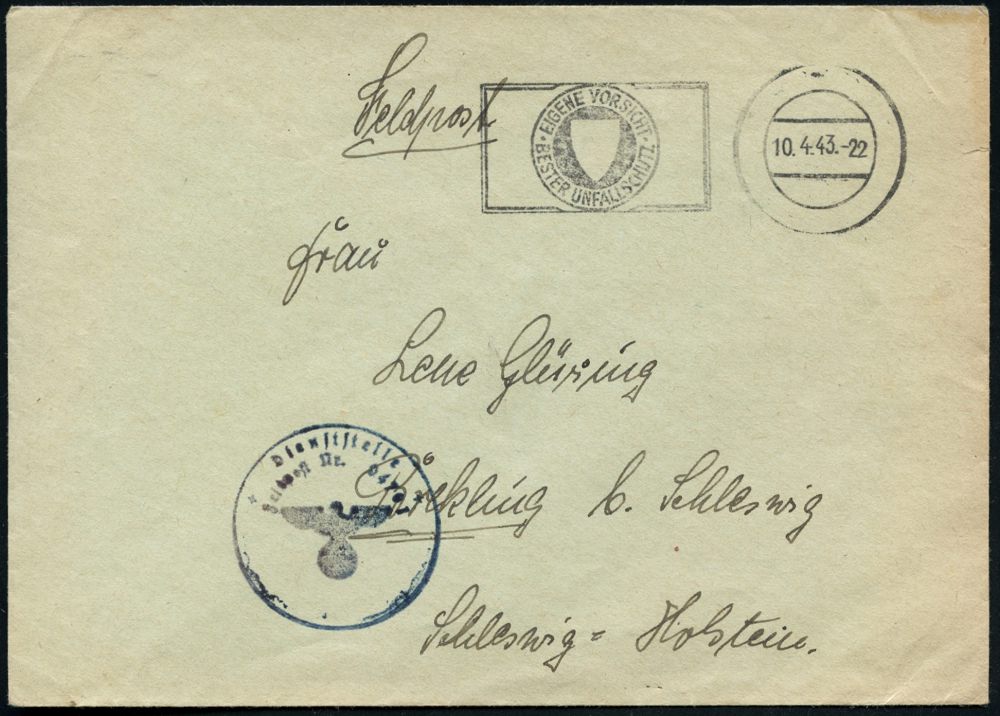 Feldpost
EIGENE VORSICHT
BESTER UNFALLSCHUTZ
10. 4. 43.-22
Frau
Lene Glüsing
Dienststelle
Feldpost Nr.
b. Schleswig
Schleswig-Holstein.